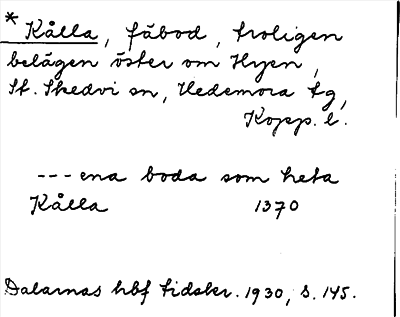 * Kålla, fäbod, troligen
belägen öster om Hyen,
St. Skedvi sn, Hedemora tg,
Kopp. l.
--- ena boda som heta
Kålla 1370
Dalarnas hbf tidskr. 1930, s. 145.